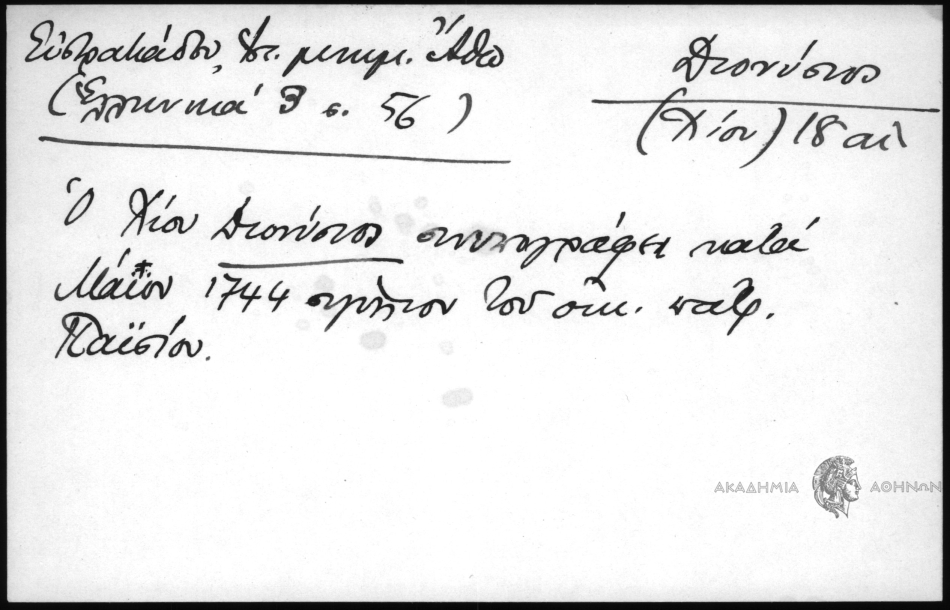 Εὐστρατιάδου, Ἱστ. μνημ. Ἄθω
(Ἑλληνικά 3 σ. 56)
Διονύσιος
(Χίου) 18 αἰ.
Ὁ Χίου Διονύσιος συνυπογράφει κατά
Μάϊον 1744 σιγίλλιον τοῦ οἰκ. πατρ.
Παϊσίου.
ΑΚΑΔΗΜΙΑ ΑΘΗΝΩΝ